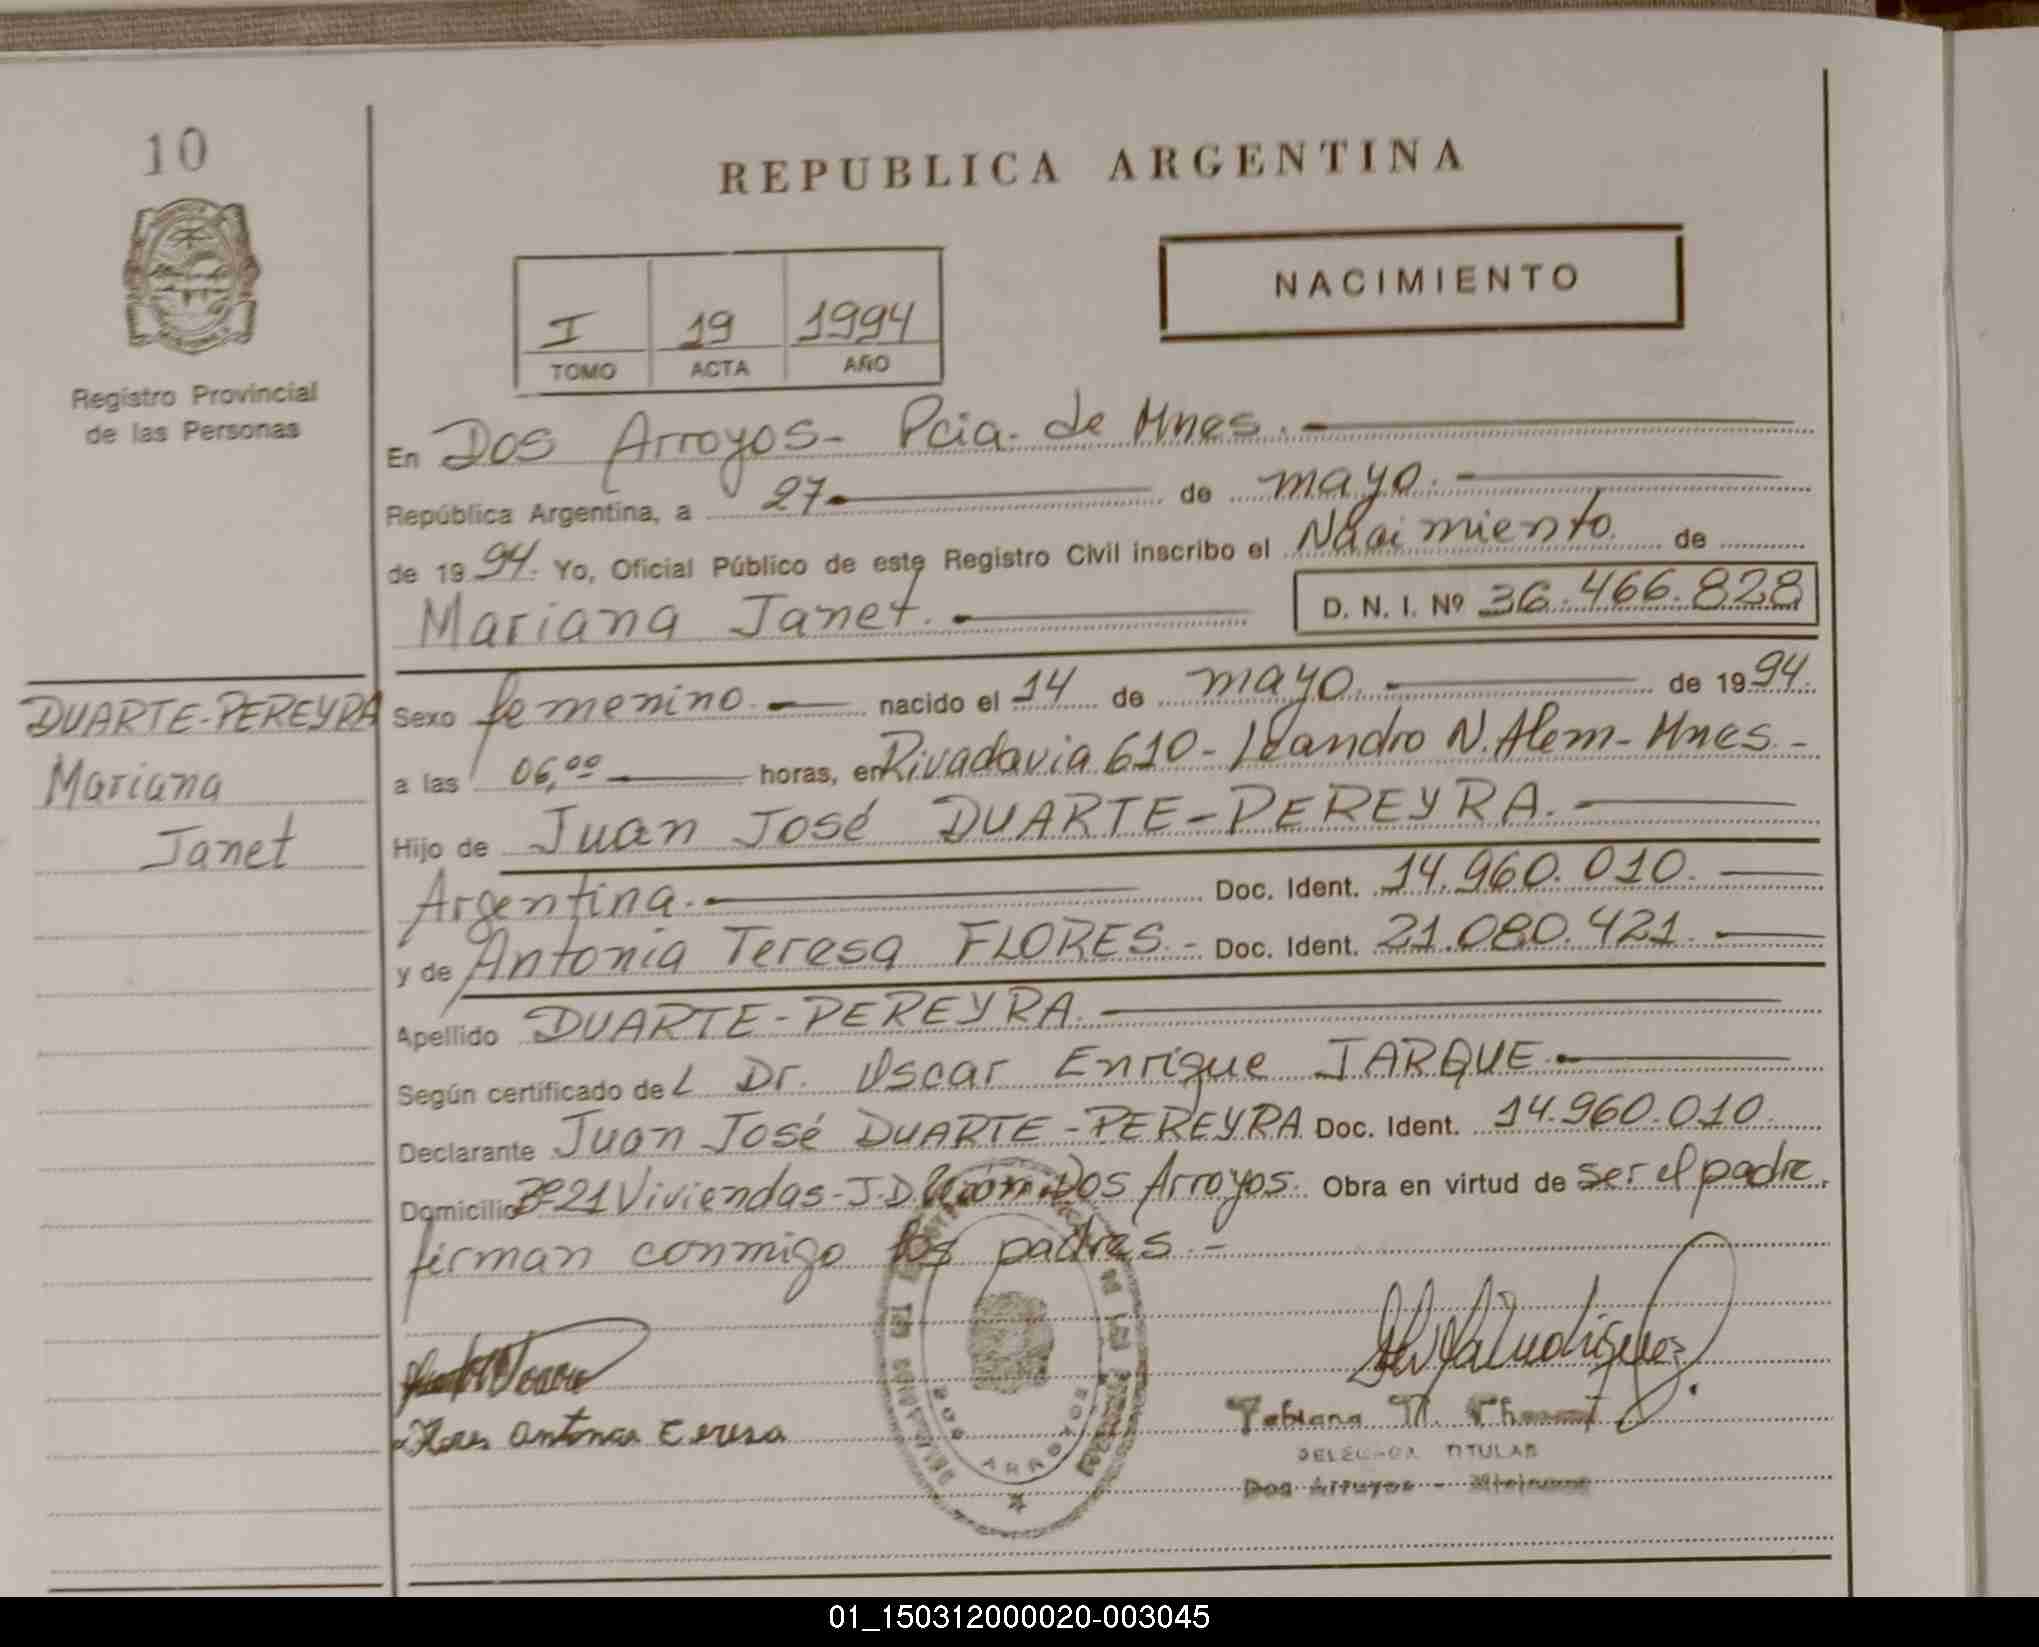 10
REPUBLICA ARGENTINA
NACIMIENTO
I 19 1994
TOMO ACTA AÑO
Registro Provincial
de las Personas
En Dos Arroyos - Pcia. de Mnes.
República Argentina, a 27 de mayo.
de 19 94. Yo, Oficial Público de este Registro Civil inscribo el Nacimiento de
Mariana Janet. D. N. I. Nº 36.466.828
DUARTE-PEREYRA
Mariana
Janet
Sexo femenino nacido el 14 de mayo. de 19 94.
a las 06,00 horas, en Rivadavia 610 - Leandro N. Alem - Mnes. -
Hijo de Juan José DUARTE-PEREYRA.
Argentina. Doc. Ident. 14.960.010.
y de Antonia Teresa FLORES. - Doc. Ident. 21.080.421.
Apellido DUARTE-PEREYRA.
Según certificado de L Dr. Oscar Enrique JARQUE.
Declarante Juan José DUARTE-PEREYRA Doc. Ident. 14.960.010.
Domicilio 21 Viviendas - J.D. Perón. Dos Arroyos. Obra en virtud de ser el padre.
firman conmigo los padres. -
Flores Antonia Teresa
DOS ARROYOS
DELEGADA TITULAR
Dos Arroyos - Misiones
01_150312000020-003045